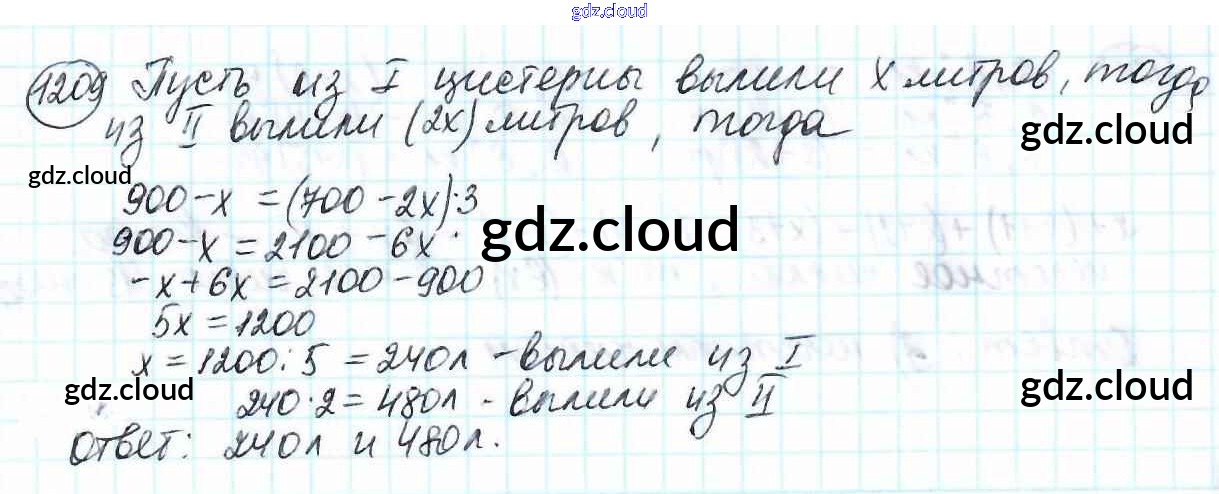 gdz.cloud
1209 Пусть из I цистерны вылили x литров, тогда
из II вылили (2x) литров, тогда
gdz.cloud
gdz.cloud
900-x=(700-2x)·3
gdz.cloud
900-x=2100-6x
-x+6x=2100-900
5x=1200
x=1200:5=240л-вылили из I
gdz.cloud
gdz.cloud
240·2=480л-вылили из II
Ответ: 240л и 480л.